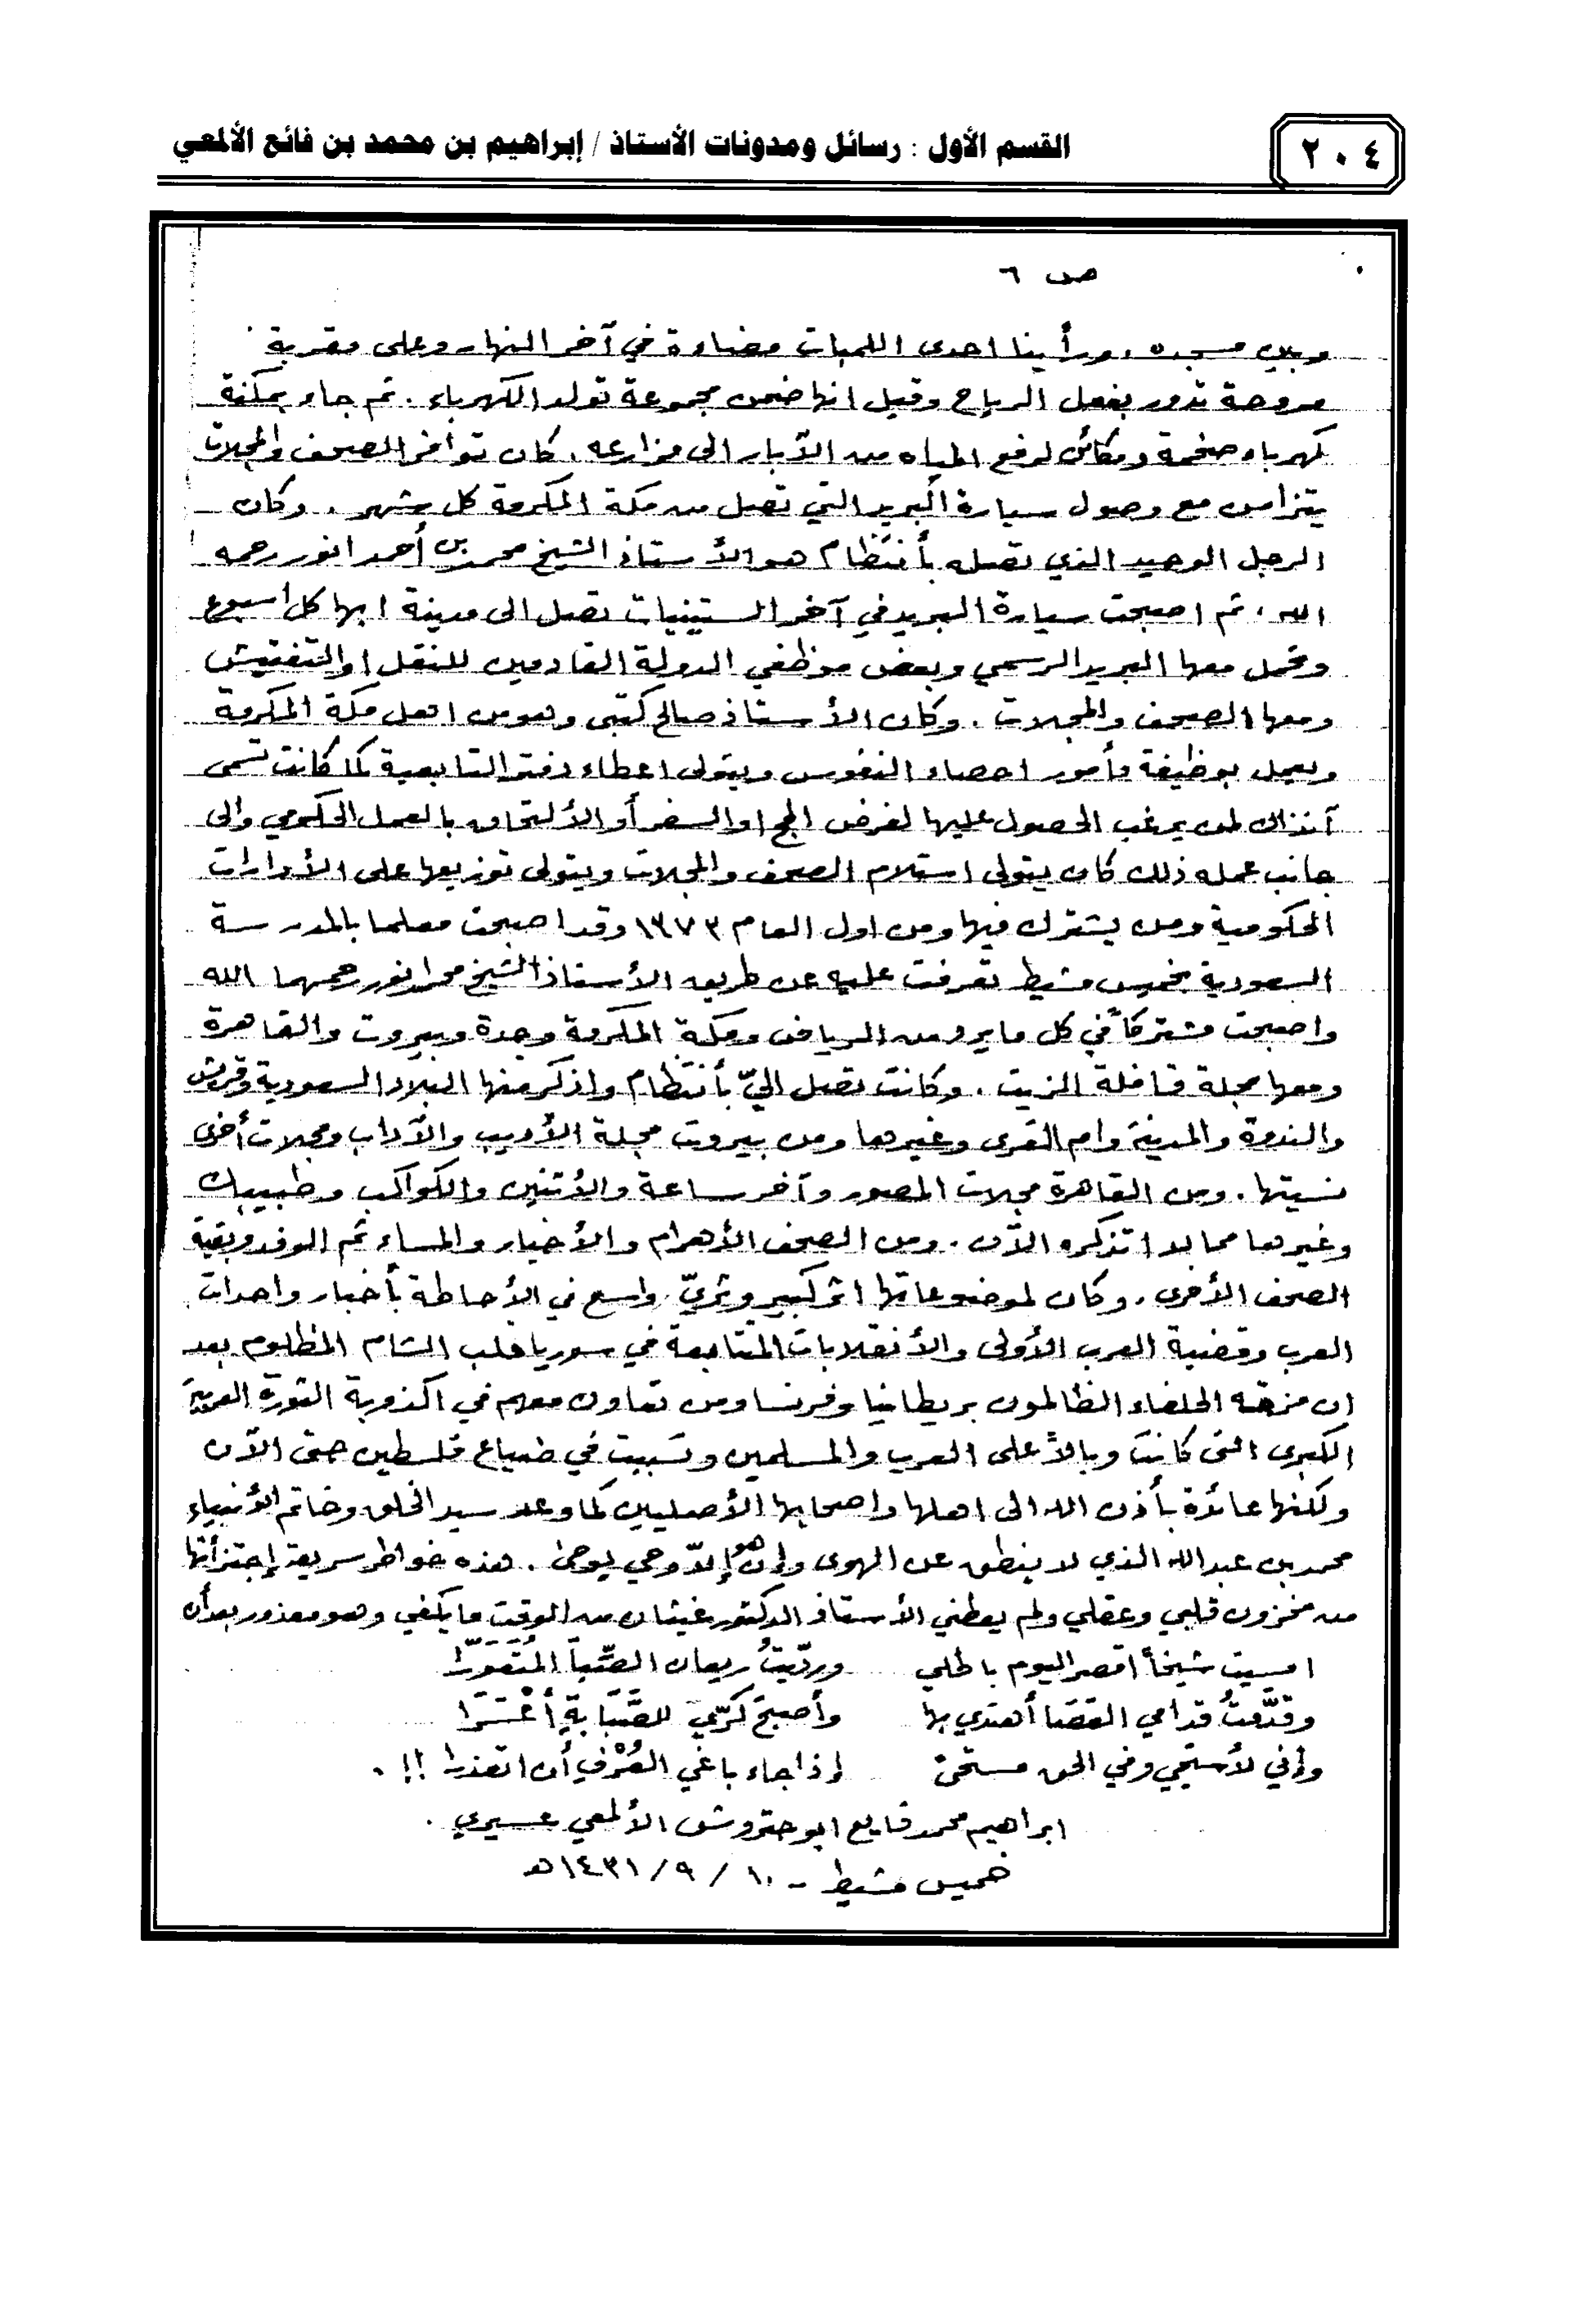 ٢٠٤
القسم الأول : رسائل ومدونات الأستاذ / إبراهيم بن محمد بن فائع الألمعي
ص ٦
وبين مسجده . ورأينا احدى اللمبات مضاءة في آخر النهار وعلى مقربة
مروحة تدور بفعل الرياح وقيل انها ضمن مجموعة تولد الكهرباء . ثم جاء بمكنة
كهرباء ضخمة ومكائن لرفع المياه من الآبار الى مزارعه . كان توافر الصحف والمجلات
يتزامن مع وصول سيارة البريد التي تصل من مكة المكرمة كل شهر . وكان
الرجل الوحيد الذي تصله بأنتظام هو الأستاذ الشيخ محمد بن أحمد انور رحمه
الله ، ثم اصبحت سيارة البريد في آخر الستينيات تصل الى مدينة ابها كل اسبوع
وتحمل معها البريد الرسمي وبعض موظفي الدولة القادمين للنقل او التفتيش
ومعها الصحف والمجلات . وكان الأستاذ صالح كتبي وهو من اهل مكة المكرمة
ويعمل بوظيفة مأمور احصاء النفوس ويتولى اعطاء دفتر التابعية كما كانت تسمى
آنذاك لمن يرغب الحصول عليها لغرض الحج او السفر أو الألتحاق بالعمل الحكومي والى
جانب عمله ذلك كان يتولى استلام الصحف والمجلات ويتولى توزيعها على الأدارات
الحكومية ومن يشترك فيها ومن اول العام ١٣٧٣ وقد اصبحت معلما بالمدرسة
السعودية بخميس مشيط تعرفت عليه عن طريق الأستاذ الشيخ محمد انور رحمهما الله
واصبحت مشتركاً في كل ما يرد من الرياض ومكة المكرمة وجدة وبيروت والقاهرة
ومعها مجلة قافلة الزيت . وكانت تصل اليّ بأنتظام واذكر منها البلاد السعودية وقريش
والندوة والمدينة وام القرى وغيرها ومن بيروت مجلة الأديب والآداب ومجلات أخرى
نسيتها . ومن القاهرة مجلات المصور وآخر ساعة والأثنين والكواكب وطبيبك
وغيرها مما لا اتذكره الآن . ومن الصحف الأهرام والأخبار والمساء ثم الوفد وبقية
الصحف الأخرى . وكان لموضوعاتها اثر كبير وثريّ واسع في الأحاطة بأخبار واحداث
العرب وقضية العرب الأولى والأنقلابات المتتابعة في سوريا قلب الشام المظلوم بعد
ان مزقه الحلفاء الظالمون بريطانيا وفرنسا ومن تعاون معهم في اكذوبة الثورة العربية
الكبرى التي كانت وبالاً على العرب والمسلمين وتسببت في ضياع فلسطين حتى الآن
ولكنها عائدة بأذن الله الى اهلها واصحابها الأصليين كما وعد سيد الخلق وخاتم الأنبياء
محمد بن عبدالله الذي لا ينطق عن الهوى وإن هو إلاّ وحي يوحى . هذه خواطر سريعة إجتزأتها
من مخزون قلبي وعقلي ولم يعطني الأستاذ الدكتور غيثان من الوقت ما يكفي وهو معذور بعد أن
امسيت شيخاً اقصر اليوم باطلي وردّيتُ ريعان الصِّبا المُتَقَوّرا
وقدّمتُ قدامي العَصَا أهتدي بها وأصبحَ كرّي للصَّبَابَةِ أعْسَرَا
وإني لأستحي وفي الحق مستحىً إذا جاء باغي العُرْفِ أن اتعذرا !! .
ابراهيم محمد فايع ابو حتروش الألمعي عسيري .
خميس مشيط - ١٠ / ٩ / ١٤٣١هـ